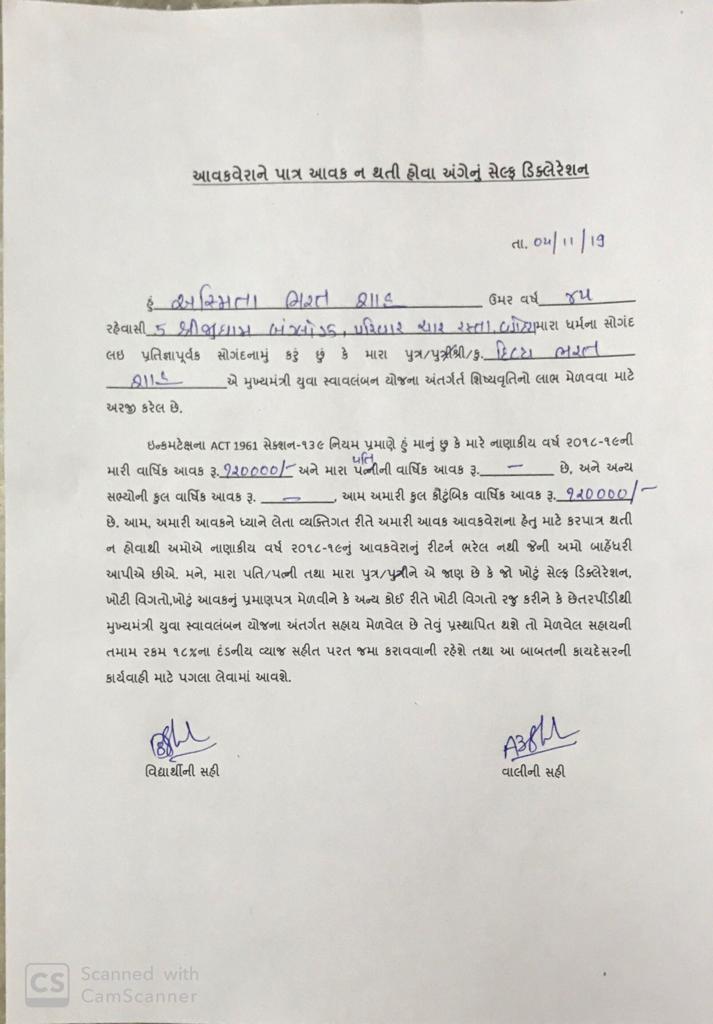 આવકવેરાને પાત્ર આવક ન થતી હોવા અંગેનું સેલ્ફ ડિક્લેરેશન
તા. ૦૫/11/19
હું અસ્મિતા ભરત શાહ ઉમર વર્ષ ૪૫
રહેવાસી ૬ શ્રીજીધામ બંગ્લોઝ, પરિવાર ચાર રસ્તા, મારા ધર્મના સોગંદ
લઇ પ્રતિજ્ઞાપૂર્વક સોગંદનામું કરું છું કે મારા પુત્ર/પુત્રીશ્રી/કુ. ભરત
શાહ એ મુખ્યમંત્રી યુવા સ્વાવલંબન યોજના અંતર્ગર્ત શિષ્યવૃતિનો લાભ મેળવવા માટે
અરજી કરેલ છે.
ઇન્કમટેક્ષના ACT 1961 સેક્શન-૧૩૯ નિયમ પ્રમાણે હું માનું છુ કે મારે નાણાકીય વર્ષ ૨૦૧૮-૧૯ની
મારી વાર્ષિક આવક રૂ. ૧૨૦૦૦૦/- અને મારા પતિ પત્નીની વાર્ષિક આવક રૂ. — છે, અને અન્ય
સભ્યોની કુલ વાર્ષિક આવક રૂ. — , આમ અમારી કુલ કૌટુંબિક વાર્ષિક આવક રૂ. ૧૨૦૦૦૦/-
છે. આમ, અમારી આવકને ધ્યાને લેતા વ્યક્તિગત રીતે અમારી આવક આવકવેરાના હેતુ માટે કરપાત્ર થતી
ન હોવાથી અમોએ નાણાકીય વર્ષ ૨૦૧૮-૧૯નું આવકવેરાનું રીટર્ન ભરેલ નથી જેની અમો બાહેંધરી
આપીએ છીએ. મને, મારા પતિ/પત્ની તથા મારા પુત્ર/પુત્રીને એ જાણ છે કે જો ખોટું સેલ્ફ ડિક્લેરેશન,
ખોટી વિગતો,ખોટું આવકનું પ્રમાણપત્ર મેળવીને કે અન્ય કોઈ રીતે ખોટી વિગતો રજુ કરીને કે છેતરપીંડીથી
મુખ્યમંત્રી યુવા સ્વાવલંબન યોજના અંતર્ગત સહાય મેળવેલ છે તેવું પ્રસ્થાપિત થશે તો મેળવેલ સહાયની
તમામ રકમ ૧૮%ના દંડનીય વ્યાજ સહીત પરત જમા કરાવવાની રહેશે તથા આ બાબતની કાયદેસરની
કાર્યવાહી માટે પગલા લેવામાં આવશે.
વિદ્યાર્થીની સહી વાલીની સહી
CS Scanned with
CamScanner